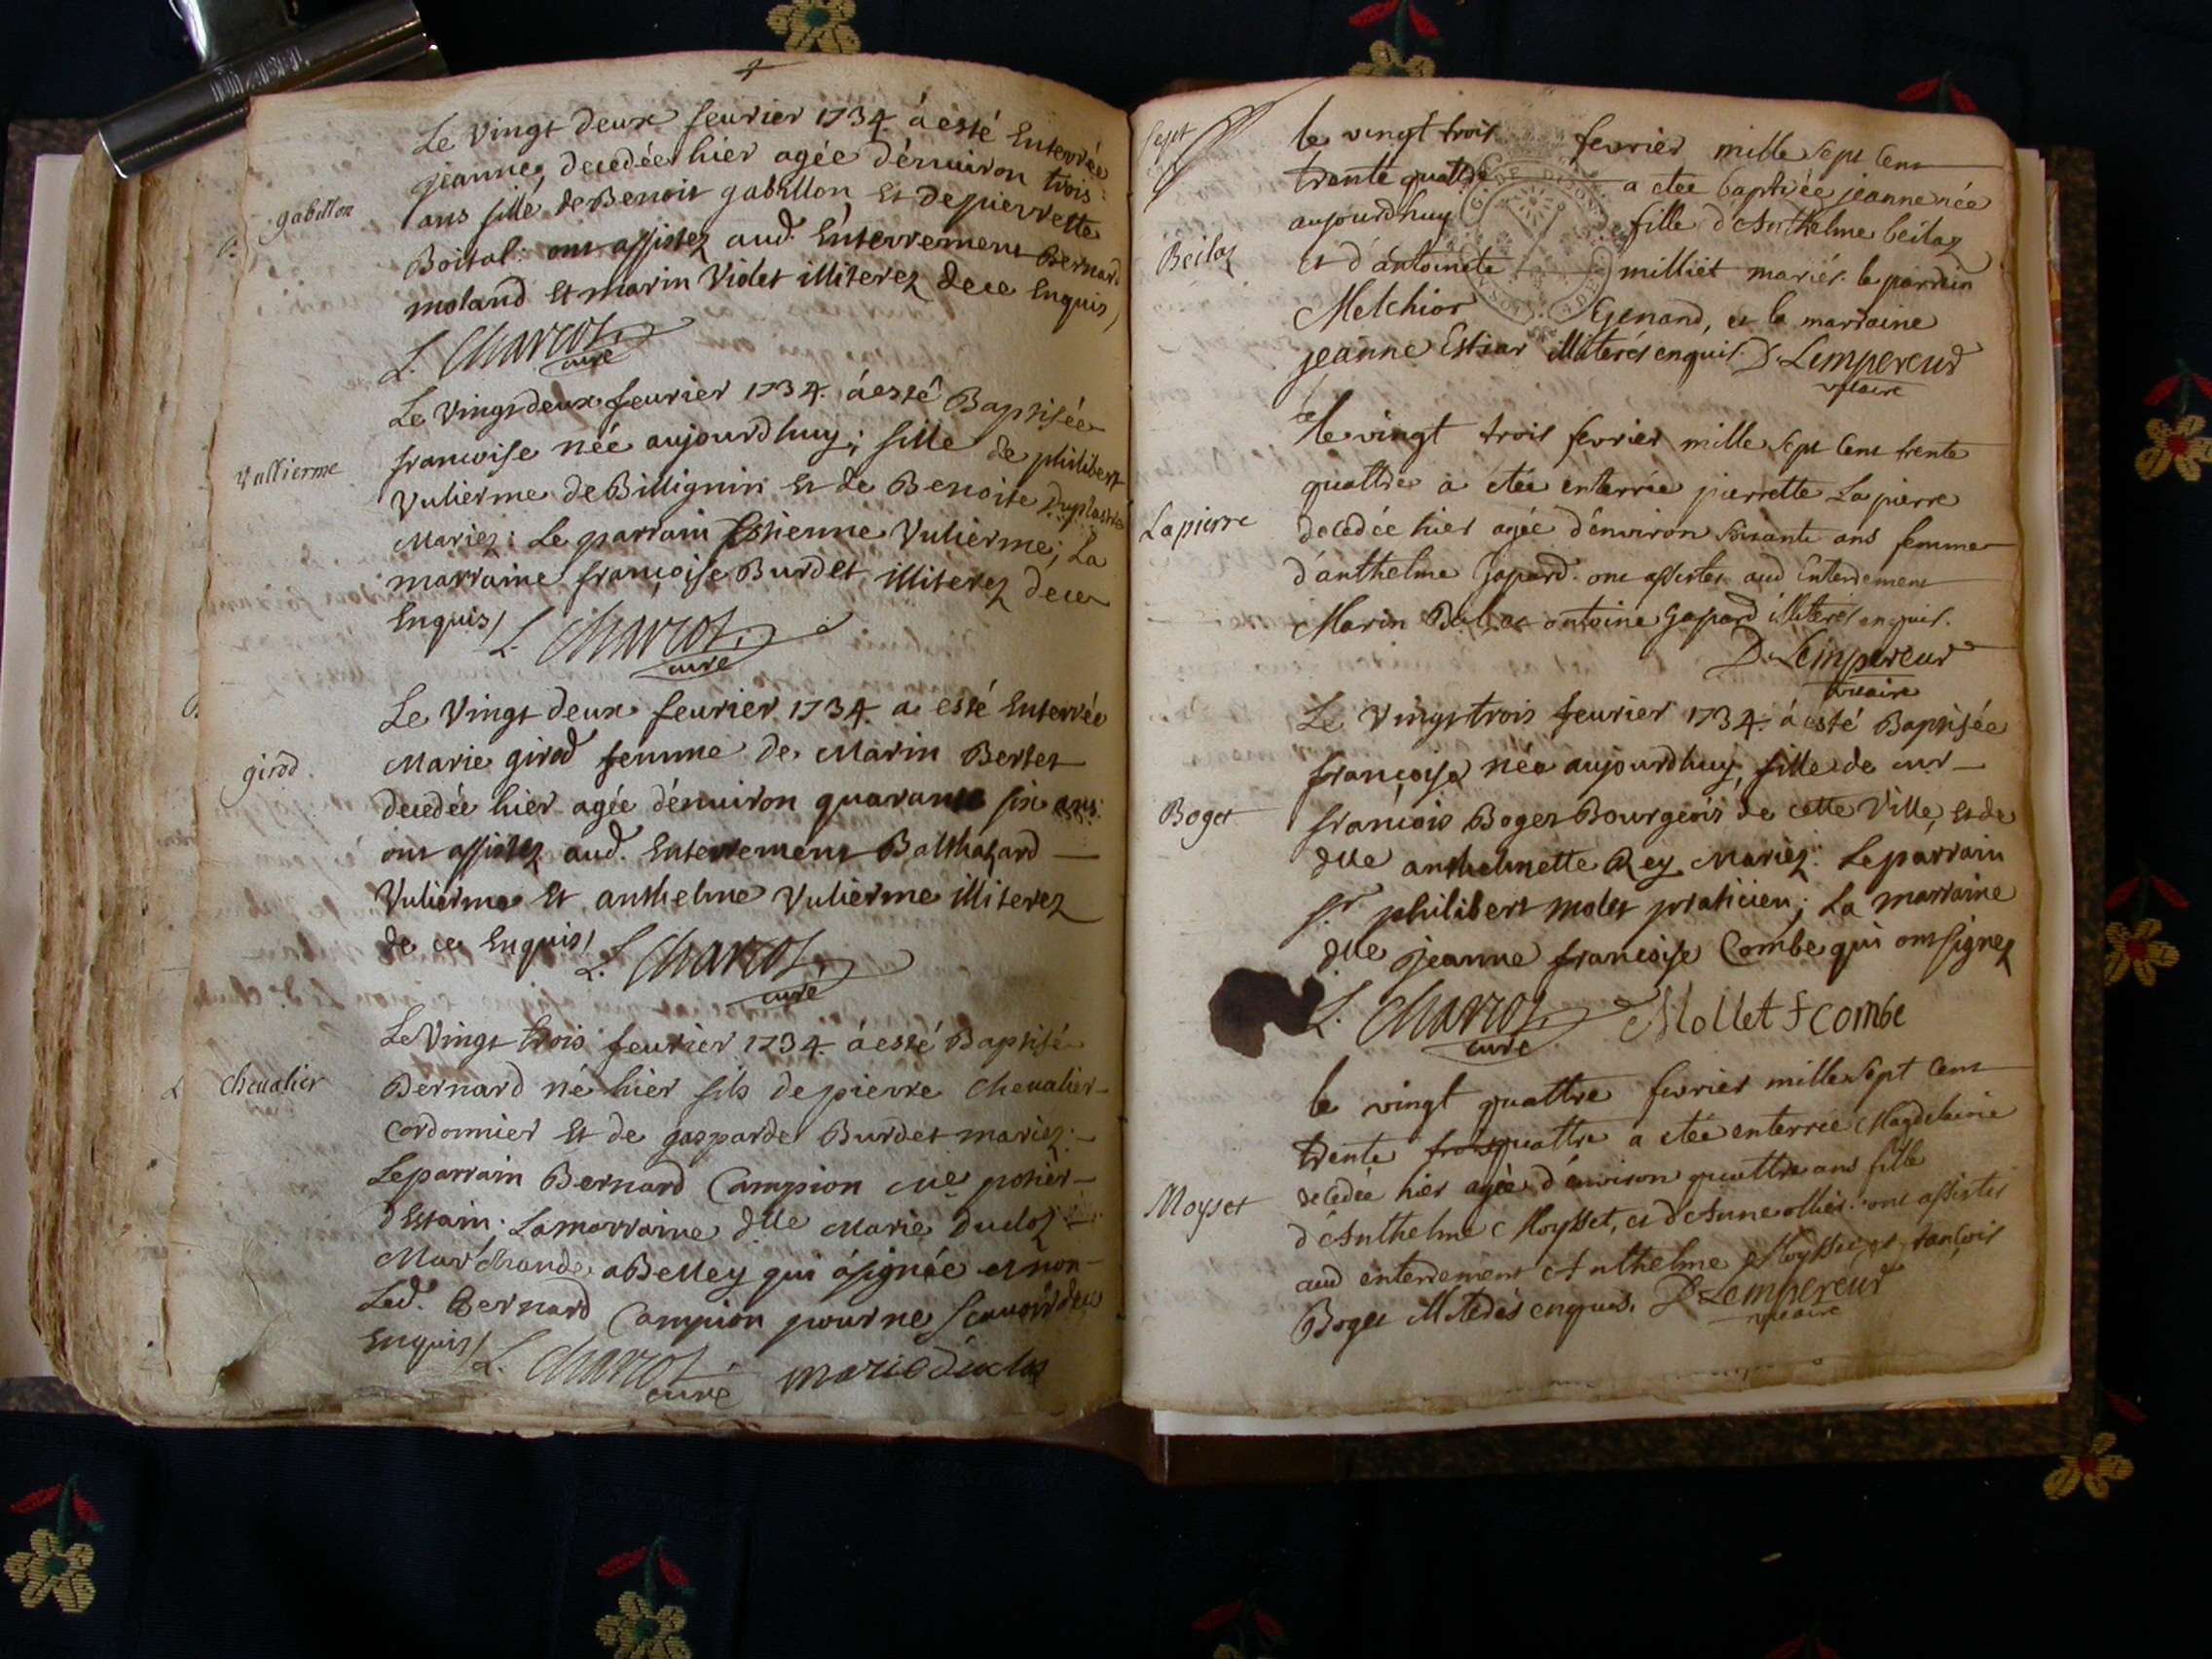 Le Vingt deux feurier 1734. á esté Enterrée
jeanne, decedée hier agée dénuiron trois
ans fille de Benoit gabillon Et de pierrette
Boital: ont assistez aud. Enterrement Bernard
moland Et marin Violet illiterez de ce Enquis
L. Charcot
curé
gabillon
Le Vingt deux feurier 1734. á esté Baptisée
francoise née aujourdhuy; fille de philibert
Vulierme de Billignin Et de Benoite
Mariez: Le parrain Estienne Vulierme; La
marraine françoise Burdet illiterez de ce
Enquis
L. Charcot
curé
Vullierme
Le Vingt deux feurier 1734. a esté Enterrée
Marie girod femme de Marin Bertet
decedée hier agée dénuiron quarante six ans:
ont assistez aud. Enterrement Balthazard
Vulierme Et anthelme Vulierme illiterez
de ce Enquis L. Charcot
curé
girod
Le Vingt trois feurier 1734. á esté Baptisé
Bernard né hier fils de pierre Cheualier
Cordonnier Et de gasparde Burdet mariez:
Le parrain Bernard Campion me potier
d'Estain; La marraine dlle Marie Dudoz
Marchande a Belley qui á signée et non
Led. Bernard Campion pour ne scauoir de ce
Enquis L. Charcot marie
curé
cheualier
le vingt trois fevrier mille sept cent
trente quattre a etée baptisée jeanne née
aujourdhuy fille d'Anthelme beilaz
et d'antoinete milliet mariés. le parrein
Melchior Genand, et la marraine
jeanne Estiar illiterés enquis. D. Lempereur
vicaire
Beilaz
le vingt trois fevrier mille sept cent trente
quattre a etée enterrée pierrette Lapierre
decedée hier agée d'environ soixante ans femme
d'anthelme Gapard. ont assistez aud Enterrement
Marin et antoine Gapard illiterés enquis.
D. Lempereur
vicaire
Lapierre
Le Vingt trois feurier 1734. á esté Baptisée
françoise née aujourdhuy, fille de mr
françois Boget Bourgeois de cette Ville, Et de
dlle anthelmette Rey Mariez: Le parrain
sr. philibert molet praticien; La marraine
dlle jeanne francoise Combe qui ont signez
L. Charcot Mollet f combe
curé
Boget
le vingt quattre fevrier mille sept cent
trente quattre a etée enterrée Magdelaine
decedée hier agée d'environ quattre ans fille
d'Anthelme Moysset, et d'Anne ollier. ont assistés
aud enterrement Anthelme Moysset, et francois
Boget illiterés enquis. D. Lempereur
vicaire
Moyset